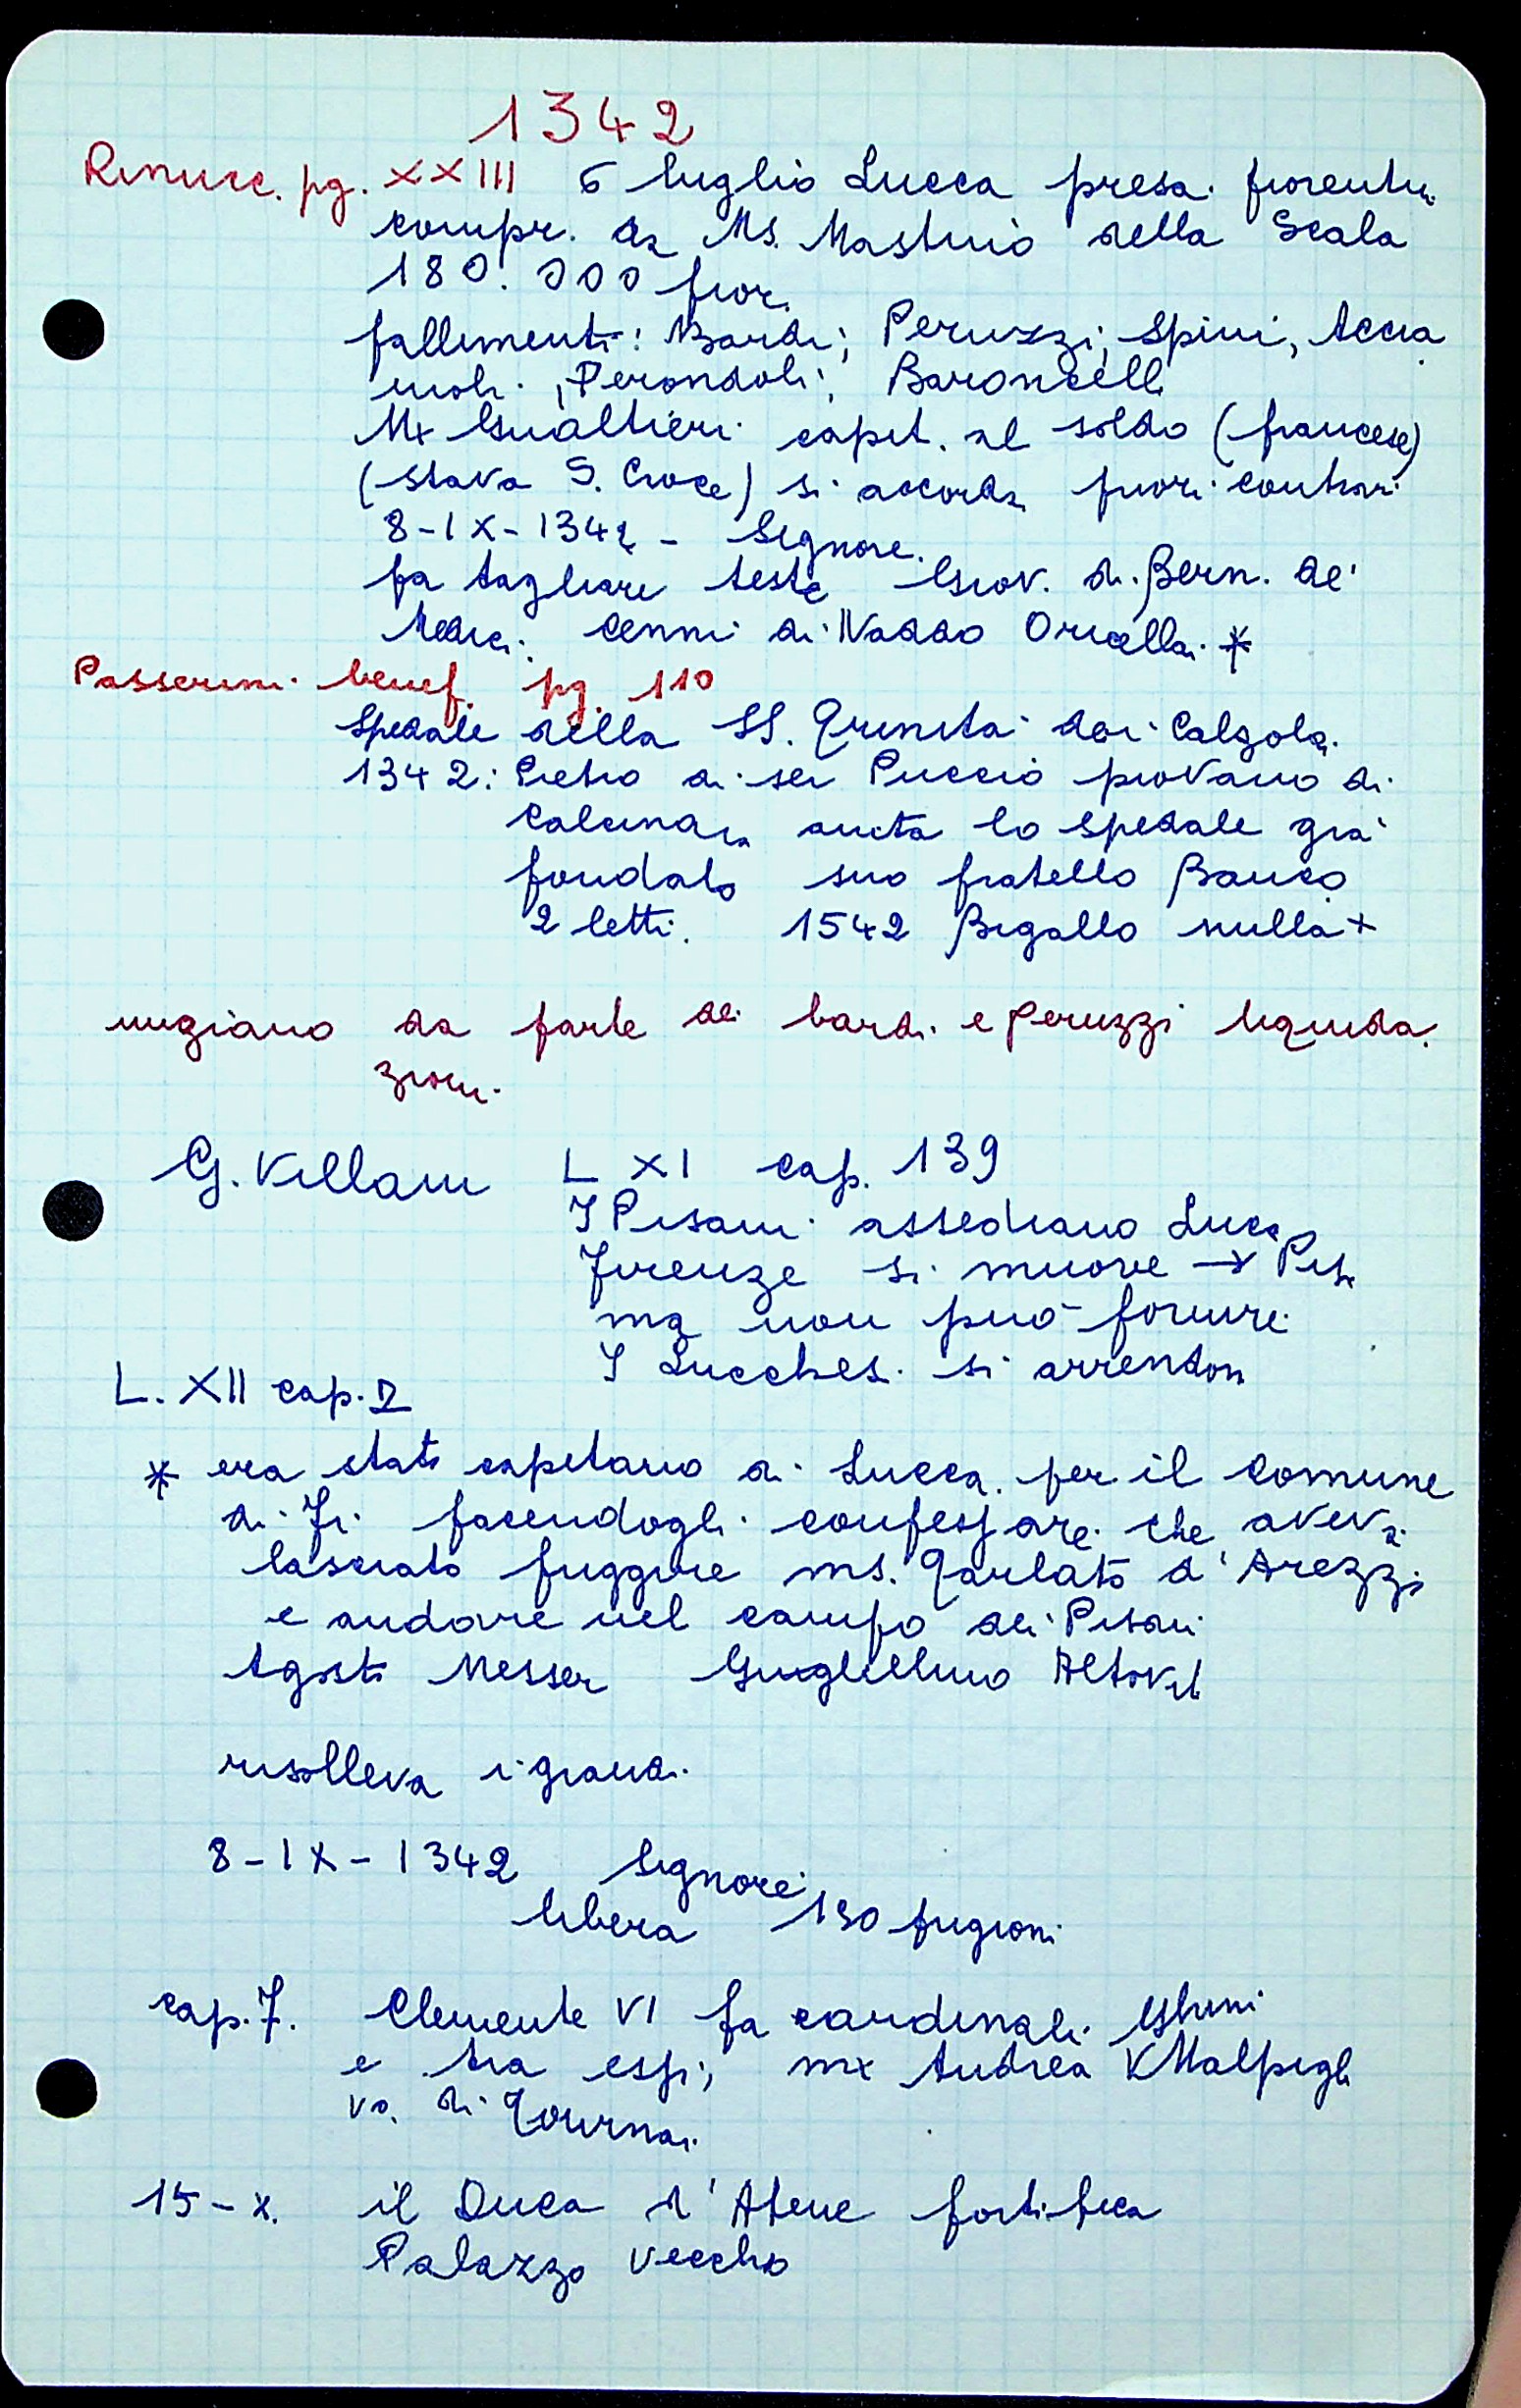 1342
Rinucc. pg. XXIII 6 luglio Lucca presa. fiorentin.
compr. da Ms. Mastino della Scala
180.000 fior.
fallimenti: Bardi; Peruzzi; Spini, Accia
iuoli, Perondoli; Baroncelli
Mx Gualtieri capit. al soldo (francese)
(stava S. Croce) si accorda fuori contrari
8-IX-1342 - Signore.
fa tagliare teste Giov. di Bern. de'
Medici. Cenni di Naddo Oricellai *
Passerini benef. pg. 110
Spedale della SS. Trinita dei Calzolai
1342: Pietro di ser Puccio provano di
Calcinaia aiuta lo spedale gia'
fondato suo fratello Banco
2 letti. 1542 Bigallo nulla +
iniziano da parte dei bardi e Peruzzi liquida.
zioni.
G. Villani L XI cap. 139
I Pisani assediano Lucca
Firenze si muove → Pisa
ma non può fornire
I Lucchesi si arrendon
L. XII cap. 2
* era stato capitano di Lucca per il comune
di Fi. facendogli confessare che aveva
lasciato fuggire ms. Tarlato d'Arezzo
e andare nel campo dei Pisani
Agosto Messer Guglielmo Altovit
risolleva i grandi
8-IX-1342 Signore
libera prigioni
cap. 7. Clemente VI fa cardinali
e tra essi; mx Andrea Malpigli
vo. di Tournai
15-X. il Duca d'Atene fortifica
Palazzo Vecchio